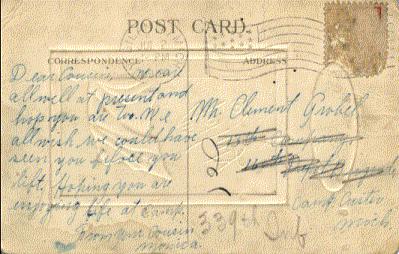 POST CARD.
CORRESPONDENCE
ADDRESS
Dear Cousin, We are
all well at present and
hope you are too. We
all wish we could have
seen you before you
left. Hoping you are
enjoying life at camp.
From your cousin
Monica.
Mr. Clement Grobel
Camp Custer
Mich.
339th Inf